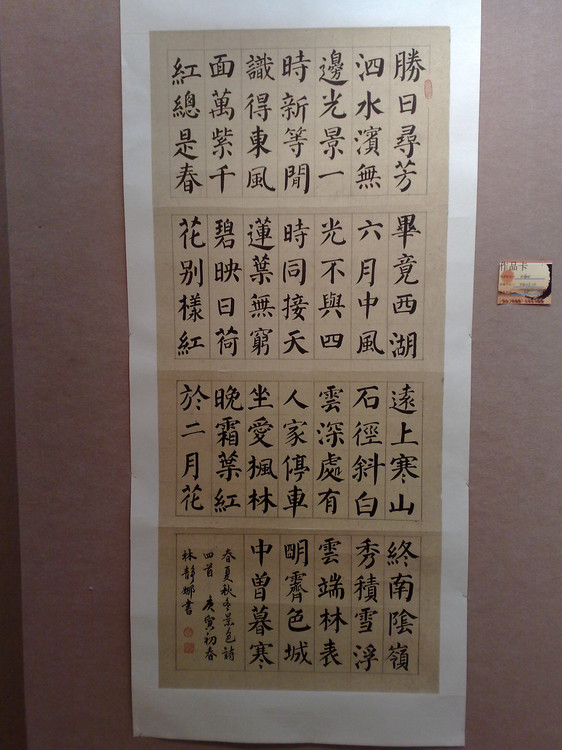 勝日尋芳
泗水濱無
邊光景一
時新等閒
識得東風
面萬紫千
紅總是春
畢竟西湖
六月中風
光不與四
時同接天
蓮葉無窮
碧映日荷
花别樣紅
遠上寒山
石徑斜白
雲深處有
人家停車
坐愛楓林
晚霜葉紅
於二月花
終南陰嶺
秀積雪浮
雲端林表
明霽色城
中曾暮寒
春夏秋冬景色詩
四首 庚寅初春
林靜娜書
作品卡